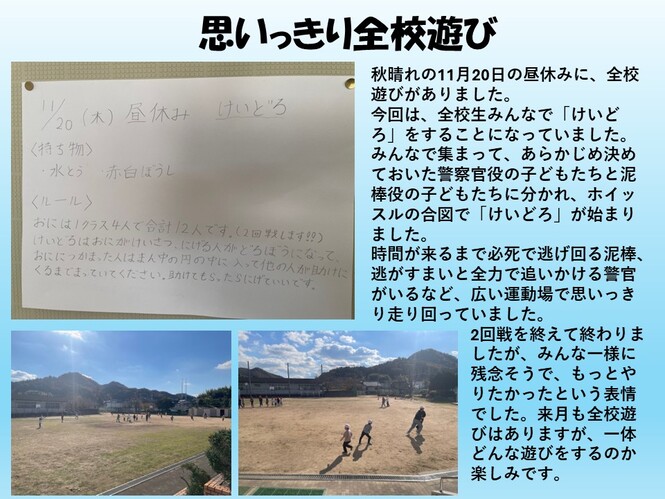 思いっきり全校遊び
11/20(木)昼休み けいどろ
〈持ち物〉
・水とう 赤白ぼうし
〈ルール〉
おには1クラス4人で合計12人です。(2回戦します!!?)
けいどろはおにがけいさつ、にげる人がどろぼうになって、
おにつかまった人はま人中の円の中に入って他の人が助けに
くるまでまっていてください。助けてもらったらにげていいです。
秋晴れの11月20日の昼休みに、全校
遊びがありました。
今回は、全校生みんなで「けいど
ろ」をすることになっていました。
みんなで集まって、あらかじめ決め
ておいた警察官役の子どもたちと泥
棒役の子どもたちに分かれ、ホイッ
スルの合図で「けいどろ」が始まり
ました。
時間が来るまで必死で逃げ回る泥棒、
逃がすまいと全力で追いかける警官
がいるなど、広い運動場で思いっき
り走り回っていました。
2回戦を終えて終わりま
したが、みんな一様に
残念そうで、もっとや
りたかったという表情
でした。来月も全校遊
びはありますが、一体
どんな遊びをするのか
楽しみです。